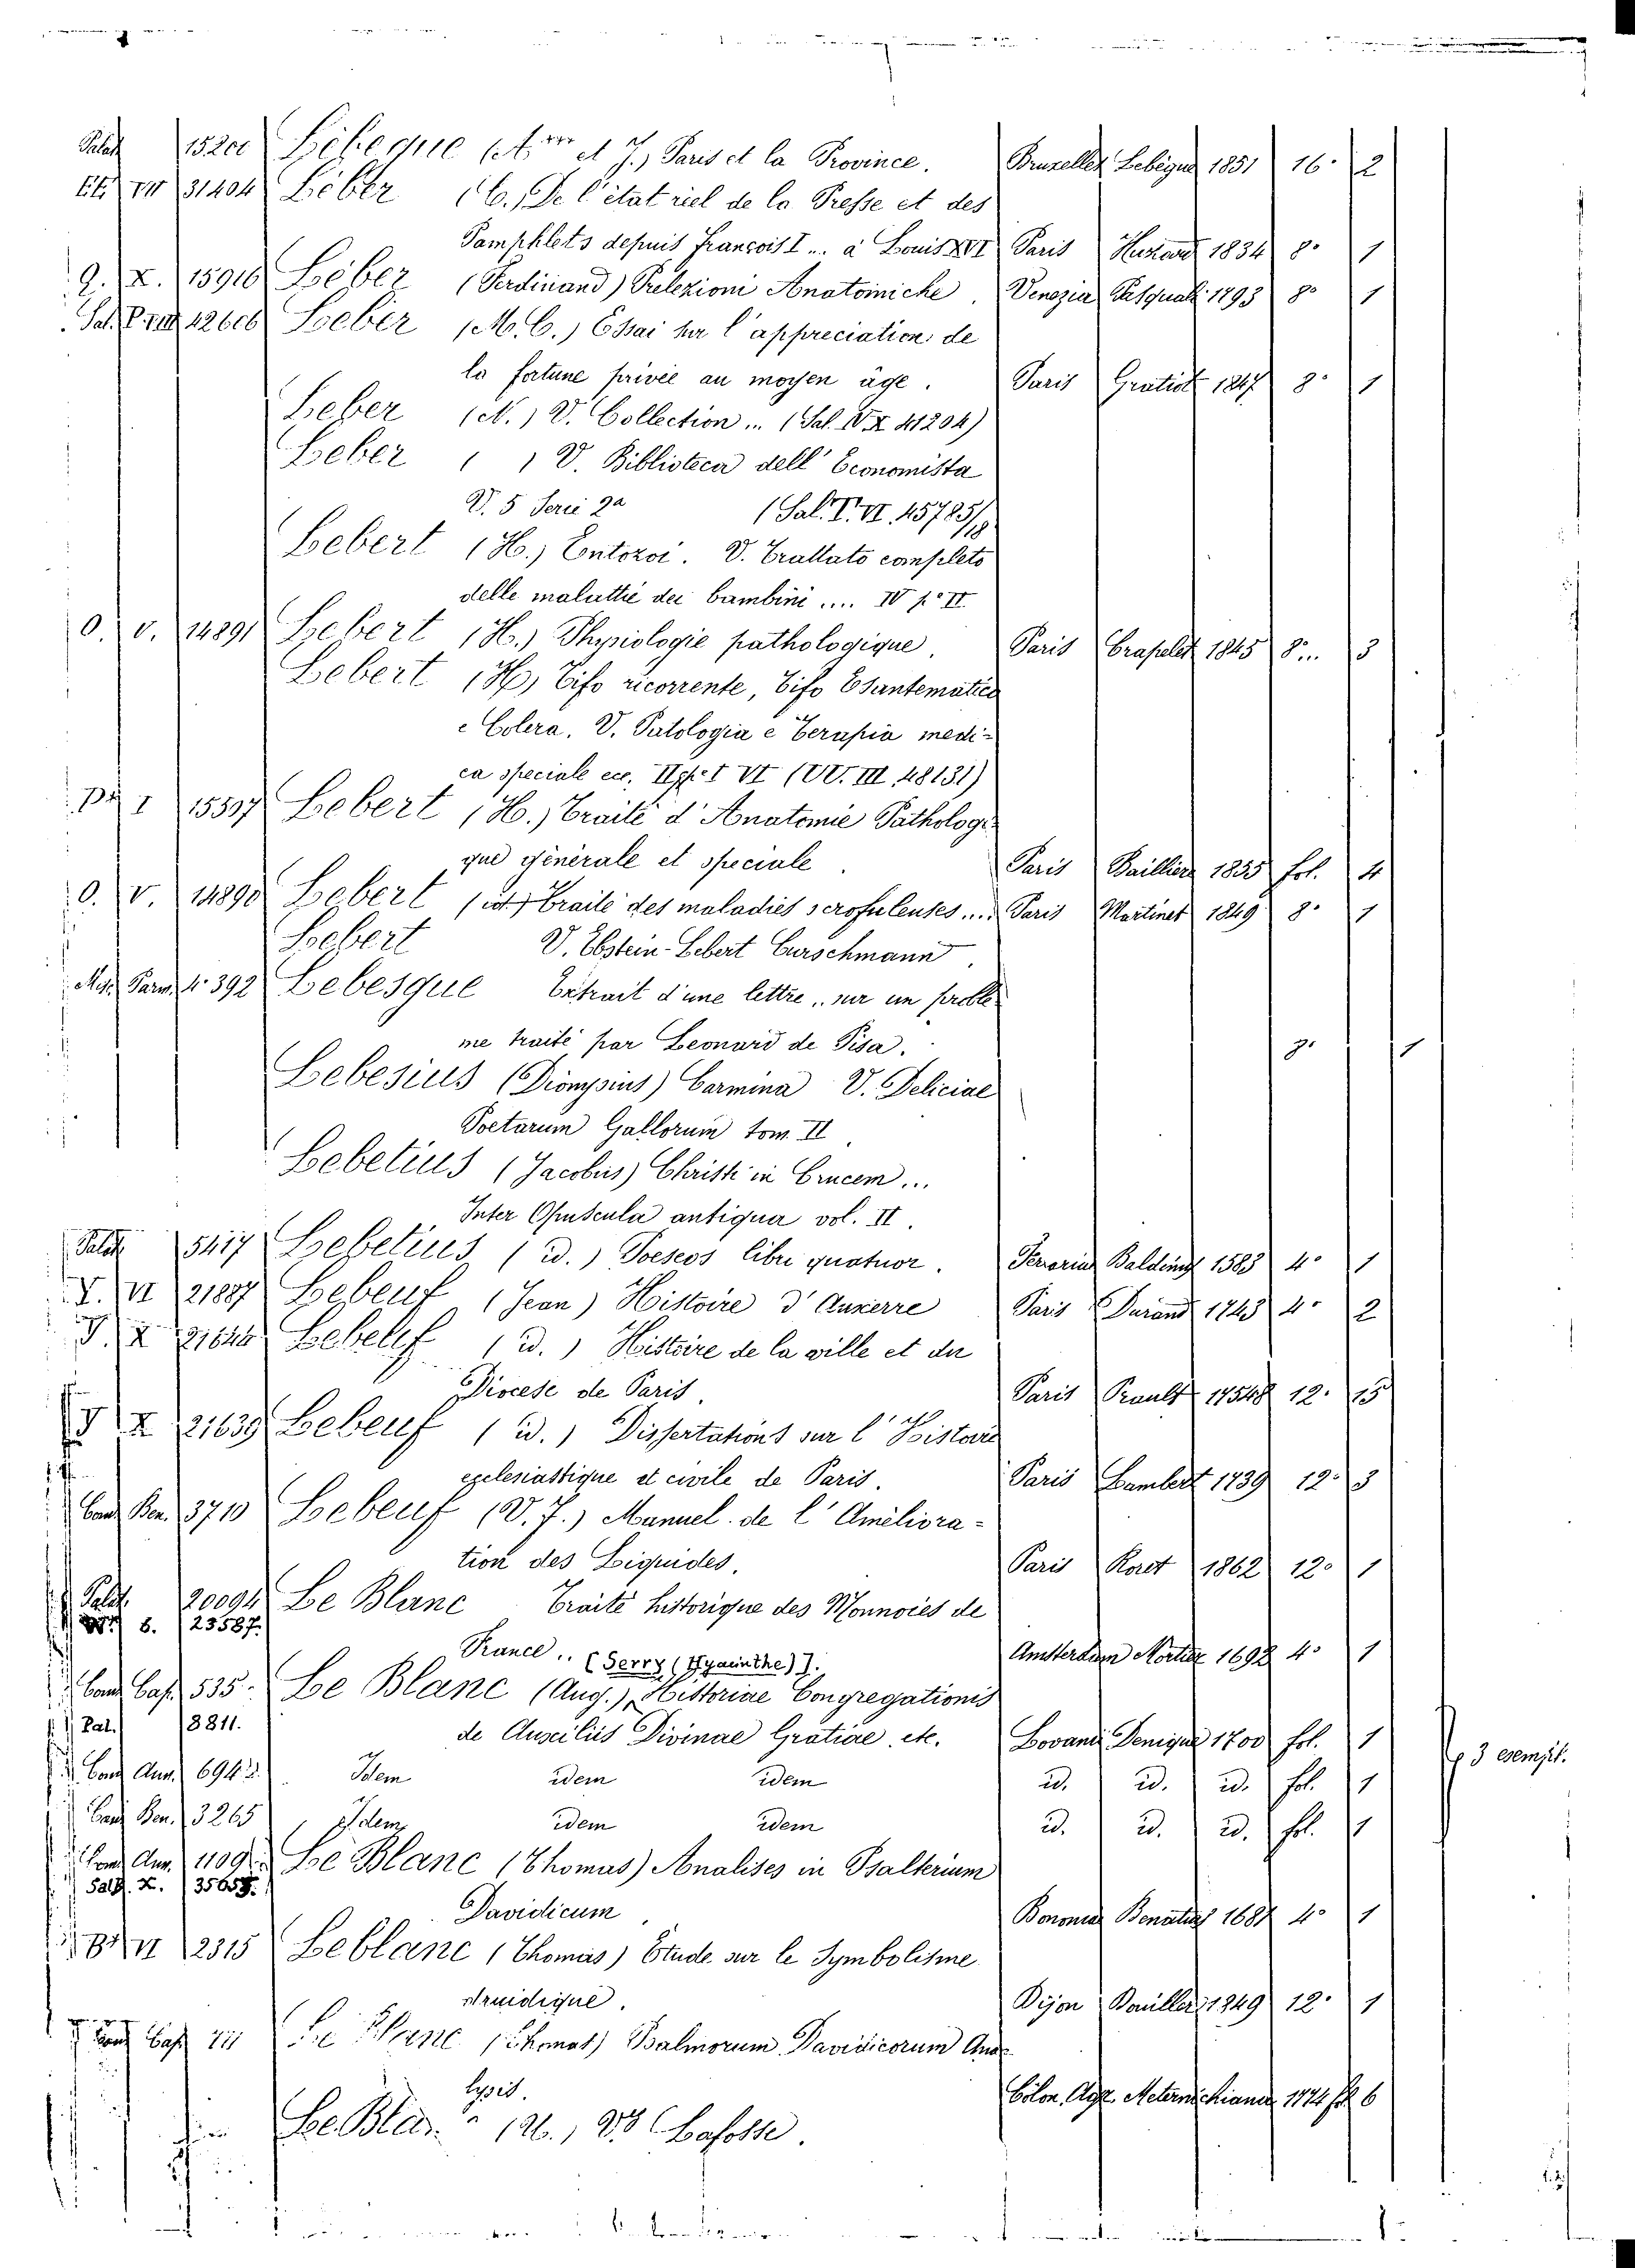 Palat. 15200 Lebegue (A. et J.) Paris et la Province. Bruxelles Lebégue 1851 16° 2
VII 31404 Leber (C.) De l'état riel de la Presse et des
Pamphlets depuis François I ... a Louis XVI Paris 1834 8° 1
Q. X. 15916 Leber (Ferdinand) Prelezioni Anatomiche. Venezia Pasquali 1793 8° 1
Leber (M. C.) Essai sur l'appreciation de
la fortune privée au moyen âge. Paris Gratiot 1847 8° 1
Leber (N.) V. Collection ... (Sal. IV X 41204)
Leber ( ) V. Biblioteca dell' Economista
V. 5 Serie 2a (Sal. T. VI. 45785/18
Lebert (H.) Entozoi. V. Trattato completo
delle malattie dei bambini .... IV p. II.
O. V. 14891 Lebert (H.) Physiologie pathologique. Paris Crapelet 1845 8° 3
Lebert (H) Tifo ricorrente, Tifo Esantematico
e Colera. V. Patologia e Terapia medi-
ca speciale ecc. II p. I VI (VV. III. 48131)
I 15597 Lebert (H.) Traité d'Anatomie Pathologi
que générale et speciale. Paris Bailliere 1855 fol. 4
O. V 14890 Lebert (id.) Traité des maladies scrofuleuses ... Paris Martinet 1849 8° 1
Lebert V. Ebstein-Lebert Curschmann.
Mss. Parm. 392 Lebesgue Extrait d'une lettre .. sur un problè
me traité par Leonard de Pisa. 8° 1
Lebesius (Dionysius) Carmina V. Deliciae
Poetarum Gallorum tom. II
Lebetius (Jacobus) Christi in Crucem ...
Inter Opuscula antiqua vol. II.
Palat. 5417 Lebetius (id.) Poeseos libri quatuor. Ferrariae Baldinus 1583 4° 1
VI 21887 Lebeuf (Jean) Histoire d'Auxerre Paris Durand 1743 4° 2
X 21640 Lebeuf (id.) Histoire de la ville et du
Diocese de Paris. Paris Prault 1754 12° 15
X 21639 Lebeuf (id.) Dissertations sur l'Histoire
ecclesiastique et civile de Paris. Paris Lambert 1739 12° 3
Ben. 3710 Lebeuf (V. F.) Manuel de l'Améliora-
tion des Liquides. Paris Roret 1862 12° 1
Palat. 20094 Le Blanc Traité historique des Monnoies de
6. 23587.
France .. Amsterdam Mortier 1692 4° 1
[Serry (Hyacinthe)].
Cap. 535. Le Blanc (Aug.) Historiae Congregationis
Pal. 8811. de Auxiliis Divinae Gratiae. etc. Lovanii Denique 1700 fol. 1
Ann. 694 Idem idem idem id. id. id. fol. 1 3 esempl.
Ben. 3265 Idem idem idem id. id. id. fol. 1
Ann. 1109 Le Blanc (Thomas) Analises in Psalterium
X. 35655.
Davidicum Bononiae Benatius 1682 4° 1
VI 2315 Leblanc (Thomas) Etude sur le Symbolisme
druidique. Dijon 1849 12° 1
Cap. Le Blanc (Thomas) Psalmorum Davidicorum Ana
lysis. Colon. Agr. Meternichiana 1744 fol. 6
Le Blanc V. Lafosse.